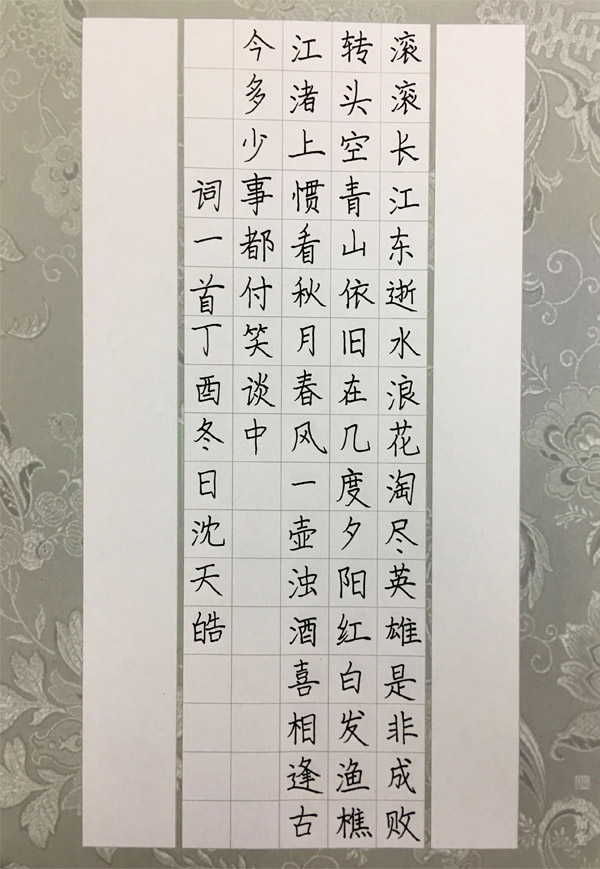 滚滚长江东逝水浪花淘尽英雄是非成败
转头空青山依旧在几度夕阳红白发渔樵
江渚上惯看秋月春风一壶浊酒喜相逢古
今多少事都付笑谈中
词一首丁酉冬日沈天皓